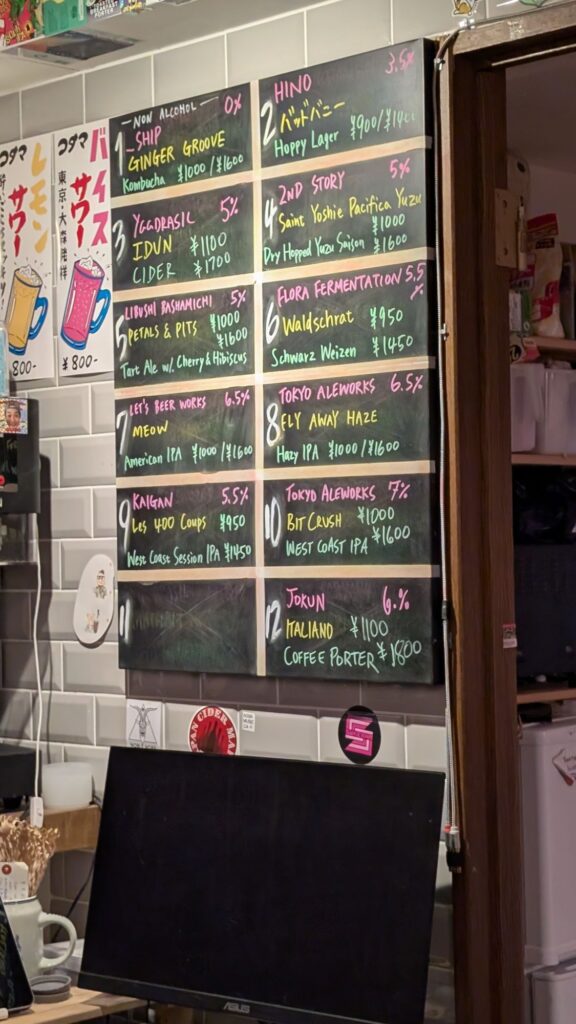 コダマ
レモン
サワー
800-
コダマ
バイス
サワー
東京・大森発祥
¥800-
1
NON ALCOHOL
0%
SHIP
GINGER GROOVE
Kombucha ¥1000/¥1600
2
HINO 3.5%
バッドバニー
Hoppy Lager ¥900/¥1400
3
YGGDRASIL 5%
IDUN ¥1100
CIDER ¥1700
4
2ND STORY 5%
Saint Yoshie Pacifica Yuzu
¥1000
Dry Hopped Yuzu Saison ¥1600
5
LIBUSHI BASHAMICHI 5%
PETALS & PITS ¥1000
¥1600
Tart Ale w/ Cherry & Hibiscus
6
FLORA FERMENTATION 5.5%
Waldschrat ¥950
Schwarz Weizen ¥1450
7
LET'S BEER WORKS 6.5%
MEOW
American IPA ¥1000/¥1600
8
TOKYO ALEWORKS 6.5%
FLY AWAY HAZE
Hazy IPA ¥1000/¥1600
9
KAIGAN 5.5%
Les 400 Coups ¥950
West Coast Session IPA ¥1450
10
TOKYO ALEWORKS 7%
BIT CRUSH ¥1000
WEST COAST IPA ¥1600
11
12
JOKUN 6.%
ITALIANO ¥1100
COFFEE PORTER ¥1800
PAN CIDER MA
ASUS